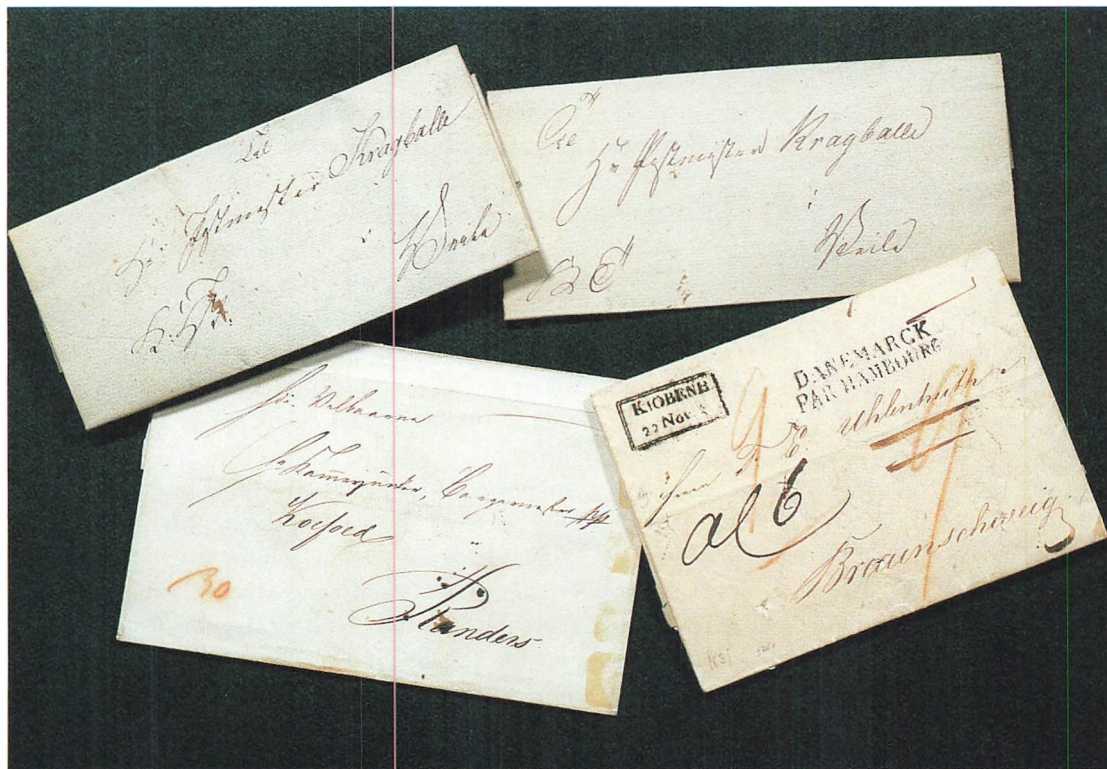 Til
Hr: Postmester Kragballe
i
Weile
K: T:
Til
Hr Postmester Kragballe
i
Weile
Velbaarne
Hr Kammerjunker, Borgemester
Koefoed
i
30
Randers
KIÖBENH
22 Nov
DANEMARCK
PAR HAMBOURG
Herrn Uhlenhuth
al 6
Braunschweig